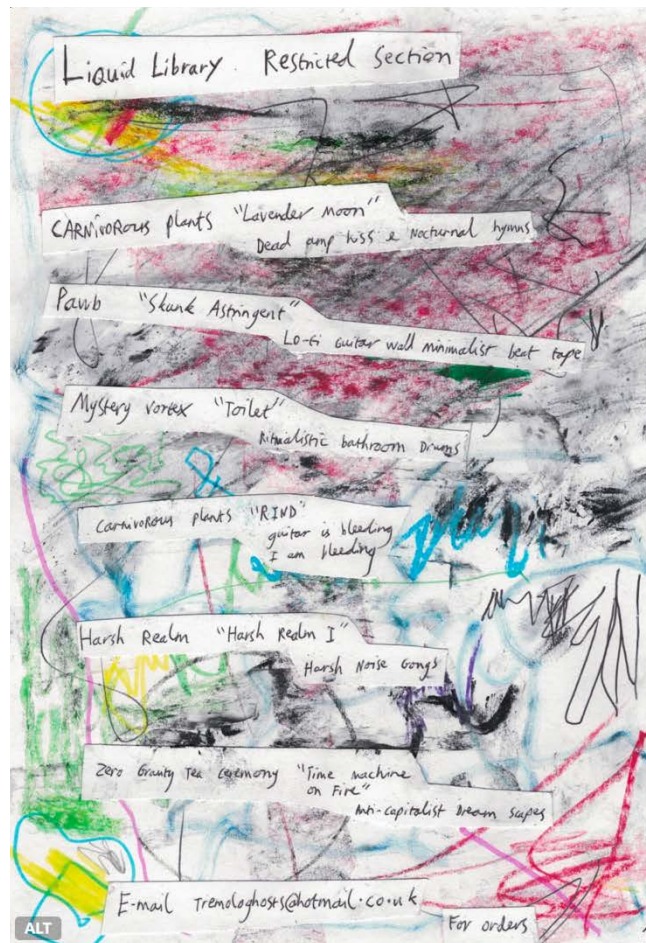 Liquid Library. Restricted Section
CARNIVOROUS plants "Lavender Moon"
Dead amp hiss & Nocturnal hymns
Pawb "Skunk Astringent"
Lo-fi Guitar wall minimalist beat tape
Mystery vortex "Toilet"
Ritualistic bathroom Drums
Carnivorous plants "RIND"
guitar is bleeding
I am bleeding
Harsh Realm "Harsh Realm I"
Harsh Noise Gongs
Zero Gravity Tea Ceremony "Time machine
on Fire"
Anti-capitalist Dream scapes
E-mail tremologhosts@hotmail.co.uk
For orders
ALT